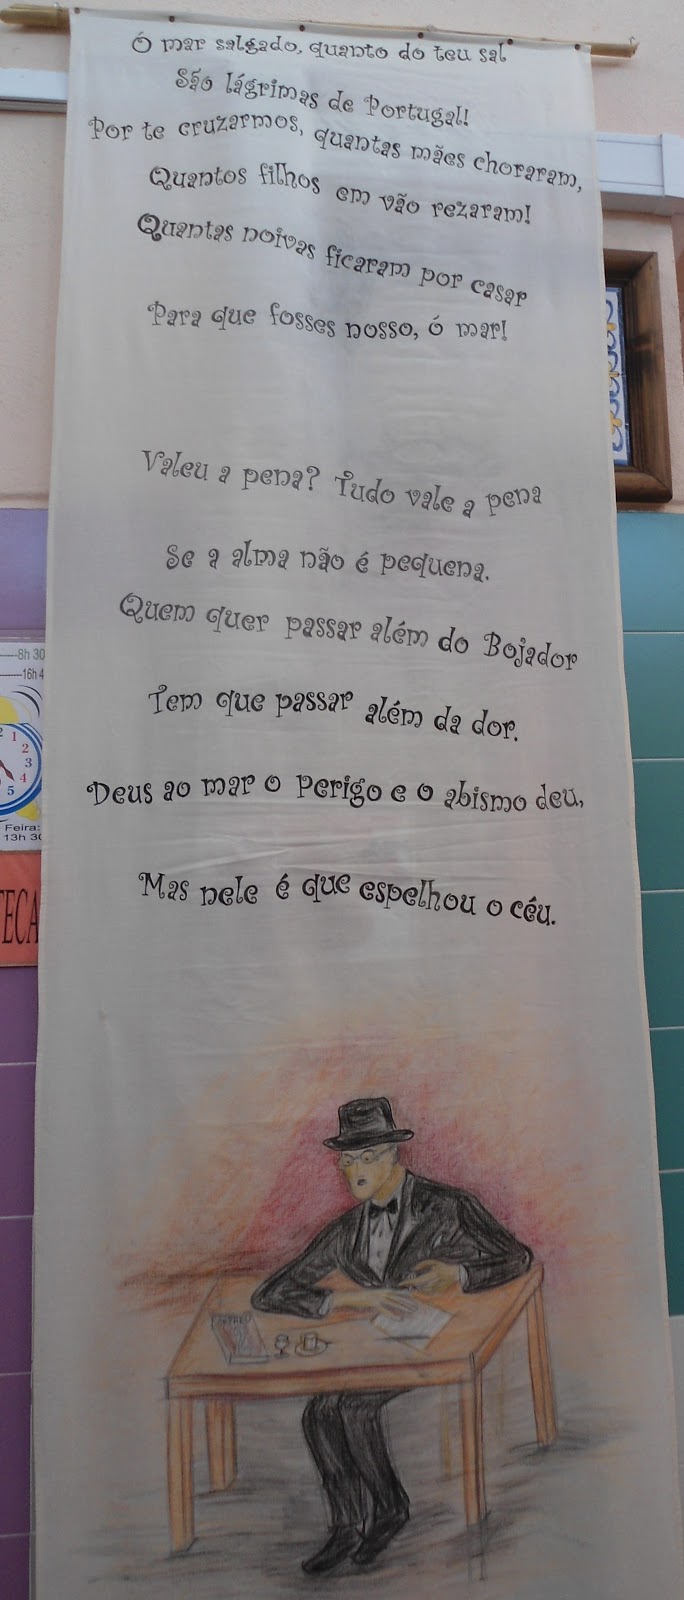 Ó mar salgado, quanto do teu sal
São lágrimas de Portugal!
Por te cruzarmos, quantas mães choraram,
Quantos filhos em vão rezaram!
Quantas noivas ficaram por casar
Para que fosses nosso, ó mar!
Valeu a pena? Tudo vale a pena
Se a alma não é pequena.
Quem quer passar além do Bojador
Tem que passar além da dor.
Deus ao mar o perigo e o abismo deu,
Mas nele é que espelhou o céu.
8h 30
16h 4
1
2
3
4
5
Feira:
13h 30
TECA